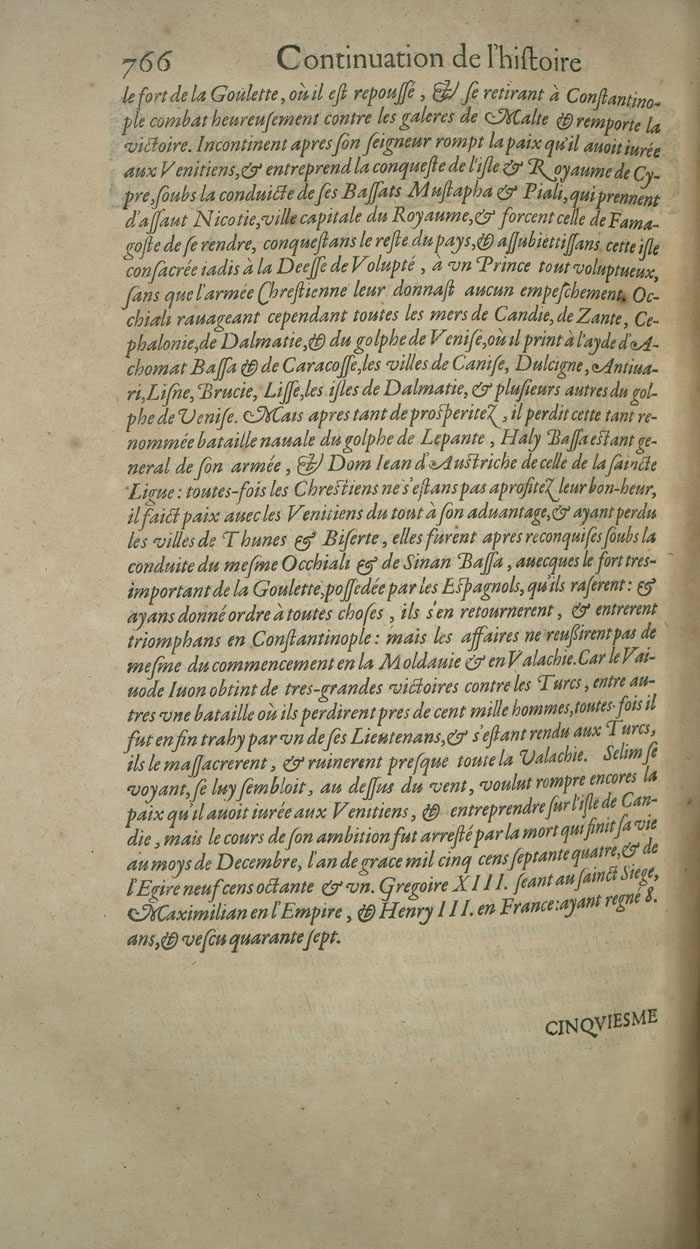 766 Continuation de l'hiſtoire
le fort de la Goulette, où il eſt repouſſé, & ſe retirant à Conſtantino-
ple combat heureuſement contre les galeres de Malte & remporte la
victoire. Incontinent apres ſon ſeigneur rompt la paix qu'il auoit iurée
aux Venitiens, & entreprend la conqueſte de l'iſle & Royaume de Cy-
pre, ſoubs la conduicte de ſes Baſſats Muſtapha & Piali, qui prennent
d'aſſaut Nicotie, ville capitale du Royaume, & forcent celle de Fama-
goſte de ſe rendre, conqueſtans le reſte du pays, & aſſubiettiſſans cette iſle
conſacrée iadis à la Deeſſe de Volupté, à vn Prince tout voluptueux,
ſans que l'armée Chreſtienne leur donnaſt aucun empeſchement. Oc-
chiali rauageant cependant toutes les mers de Candie, de Zante, Ce-
phalonie, de Dalmatie, & du golphe de Veniſe, où il print à l'ayde d'A-
chomat Baſſa & de Caracoſſe, les villes de Caniſe, Dulcigne, Antiua-
ri, Liſne, Brucie, Liſſe, les iſles de Dalmatie, & pluſieurs autres du gol-
phe de Veniſe. Mais apres tant de proſperitez, il perdit cette tant re-
nommée bataille nauale du golphe de Lepante, Haly Baſſa eſtant ge-
neral de ſon armée, & Dom Iean d'Auſtriche de celle de la ſaincte
Ligue: toutes-fois les Chreſtiens ne s'eſtans pas aprofitez leur bon-heur,
il faict paix auec les Venitiens du tout à ſon aduantage, & ayant perdu
les villes de Thunes & Biſerte, elles furent apres reconquiſes ſoubs la
conduite du meſme Occhiali & de Sinan Baſſa, auecques le fort tres-
important de la Goulette, poſſedée par les Eſpagnols, qu'ils raſerent: &
ayans donné ordre à toutes choſes, ils s'en retournerent, & entrerent
triomphans en Conſtantinople: mais les affaires ne reußirent pas de
meſme du commencement en la Moldauie & en Valachie. Car le Vai-
uode Iuon obtint de tres-grandes victoires contre les Turcs, entre au-
tres vne bataille où ils perdirent pres de cent mille hommes, toutes-fois il
fut en fin trahy par vn de ſes Lieutenans, & s'eſtant rendu aux Turcs,
ils le maſſacrerent, & ruinerent preſque toute la Valachie. Selim ſe
voyant, ſe luy ſembloit, au deſſus du vent, voulut rompre encores la
paix qu'il auoit iurée aux Venitiens, & entreprendre ſur l'iſle de Can-
die, mais le cours de ſon ambition fut arreſté par la mort qui finit ſa vie
au moys de Decembre, l'an de grace mil cinq cens ſeptante quatre, & de
l'Egire neuf cens octante & vn. Gregoire XIII. ſeant au ſainct Siege,
Maximilian en l'Empire, & Henry III. en France: ayant regné 8.
ans, & veſcu quarante ſept.
CINQVIESME